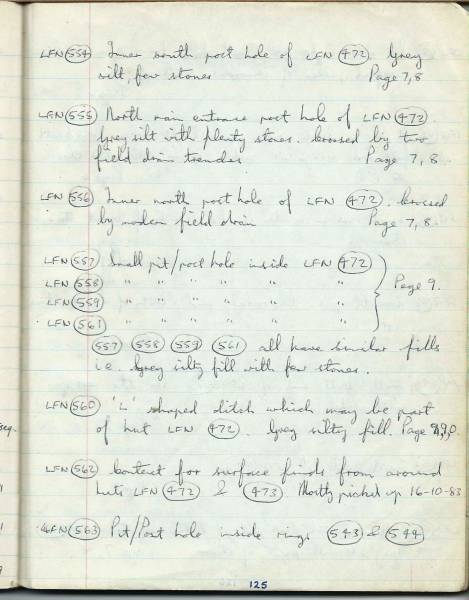 LFN (554) Inner south post hole of LFN (472). Grey
silt, few stones Page 7, 8
LFN (555) North main entrance post hole of LFN (472).
Grey silt with plenty stones. Crossed by two
field drain trenches Page 7, 8.
LFN (556) Inner north post hole of LFN (472). Crossed
by modern field drain Page 7, 8
LFN (557) Small pit/post hole inside LFN (472)
LFN (558) " " " " " " Page 9.
LFN (559) " " " " " "
LFN (561) " " " " " "
(557) (558) (559) (561) all have similar fills
i.e. Grey silty fill with few stones.
LFN (560) 'L' shaped ditch which may be part
of hut LFN (472). Grey silty fill. Page
LFN (562) Context for surface finds from around
huts LFN (472) & (473). Mostly picked up 16-10-83
LFN (563) Pit/Post hole inside rings (543) & (544)
125